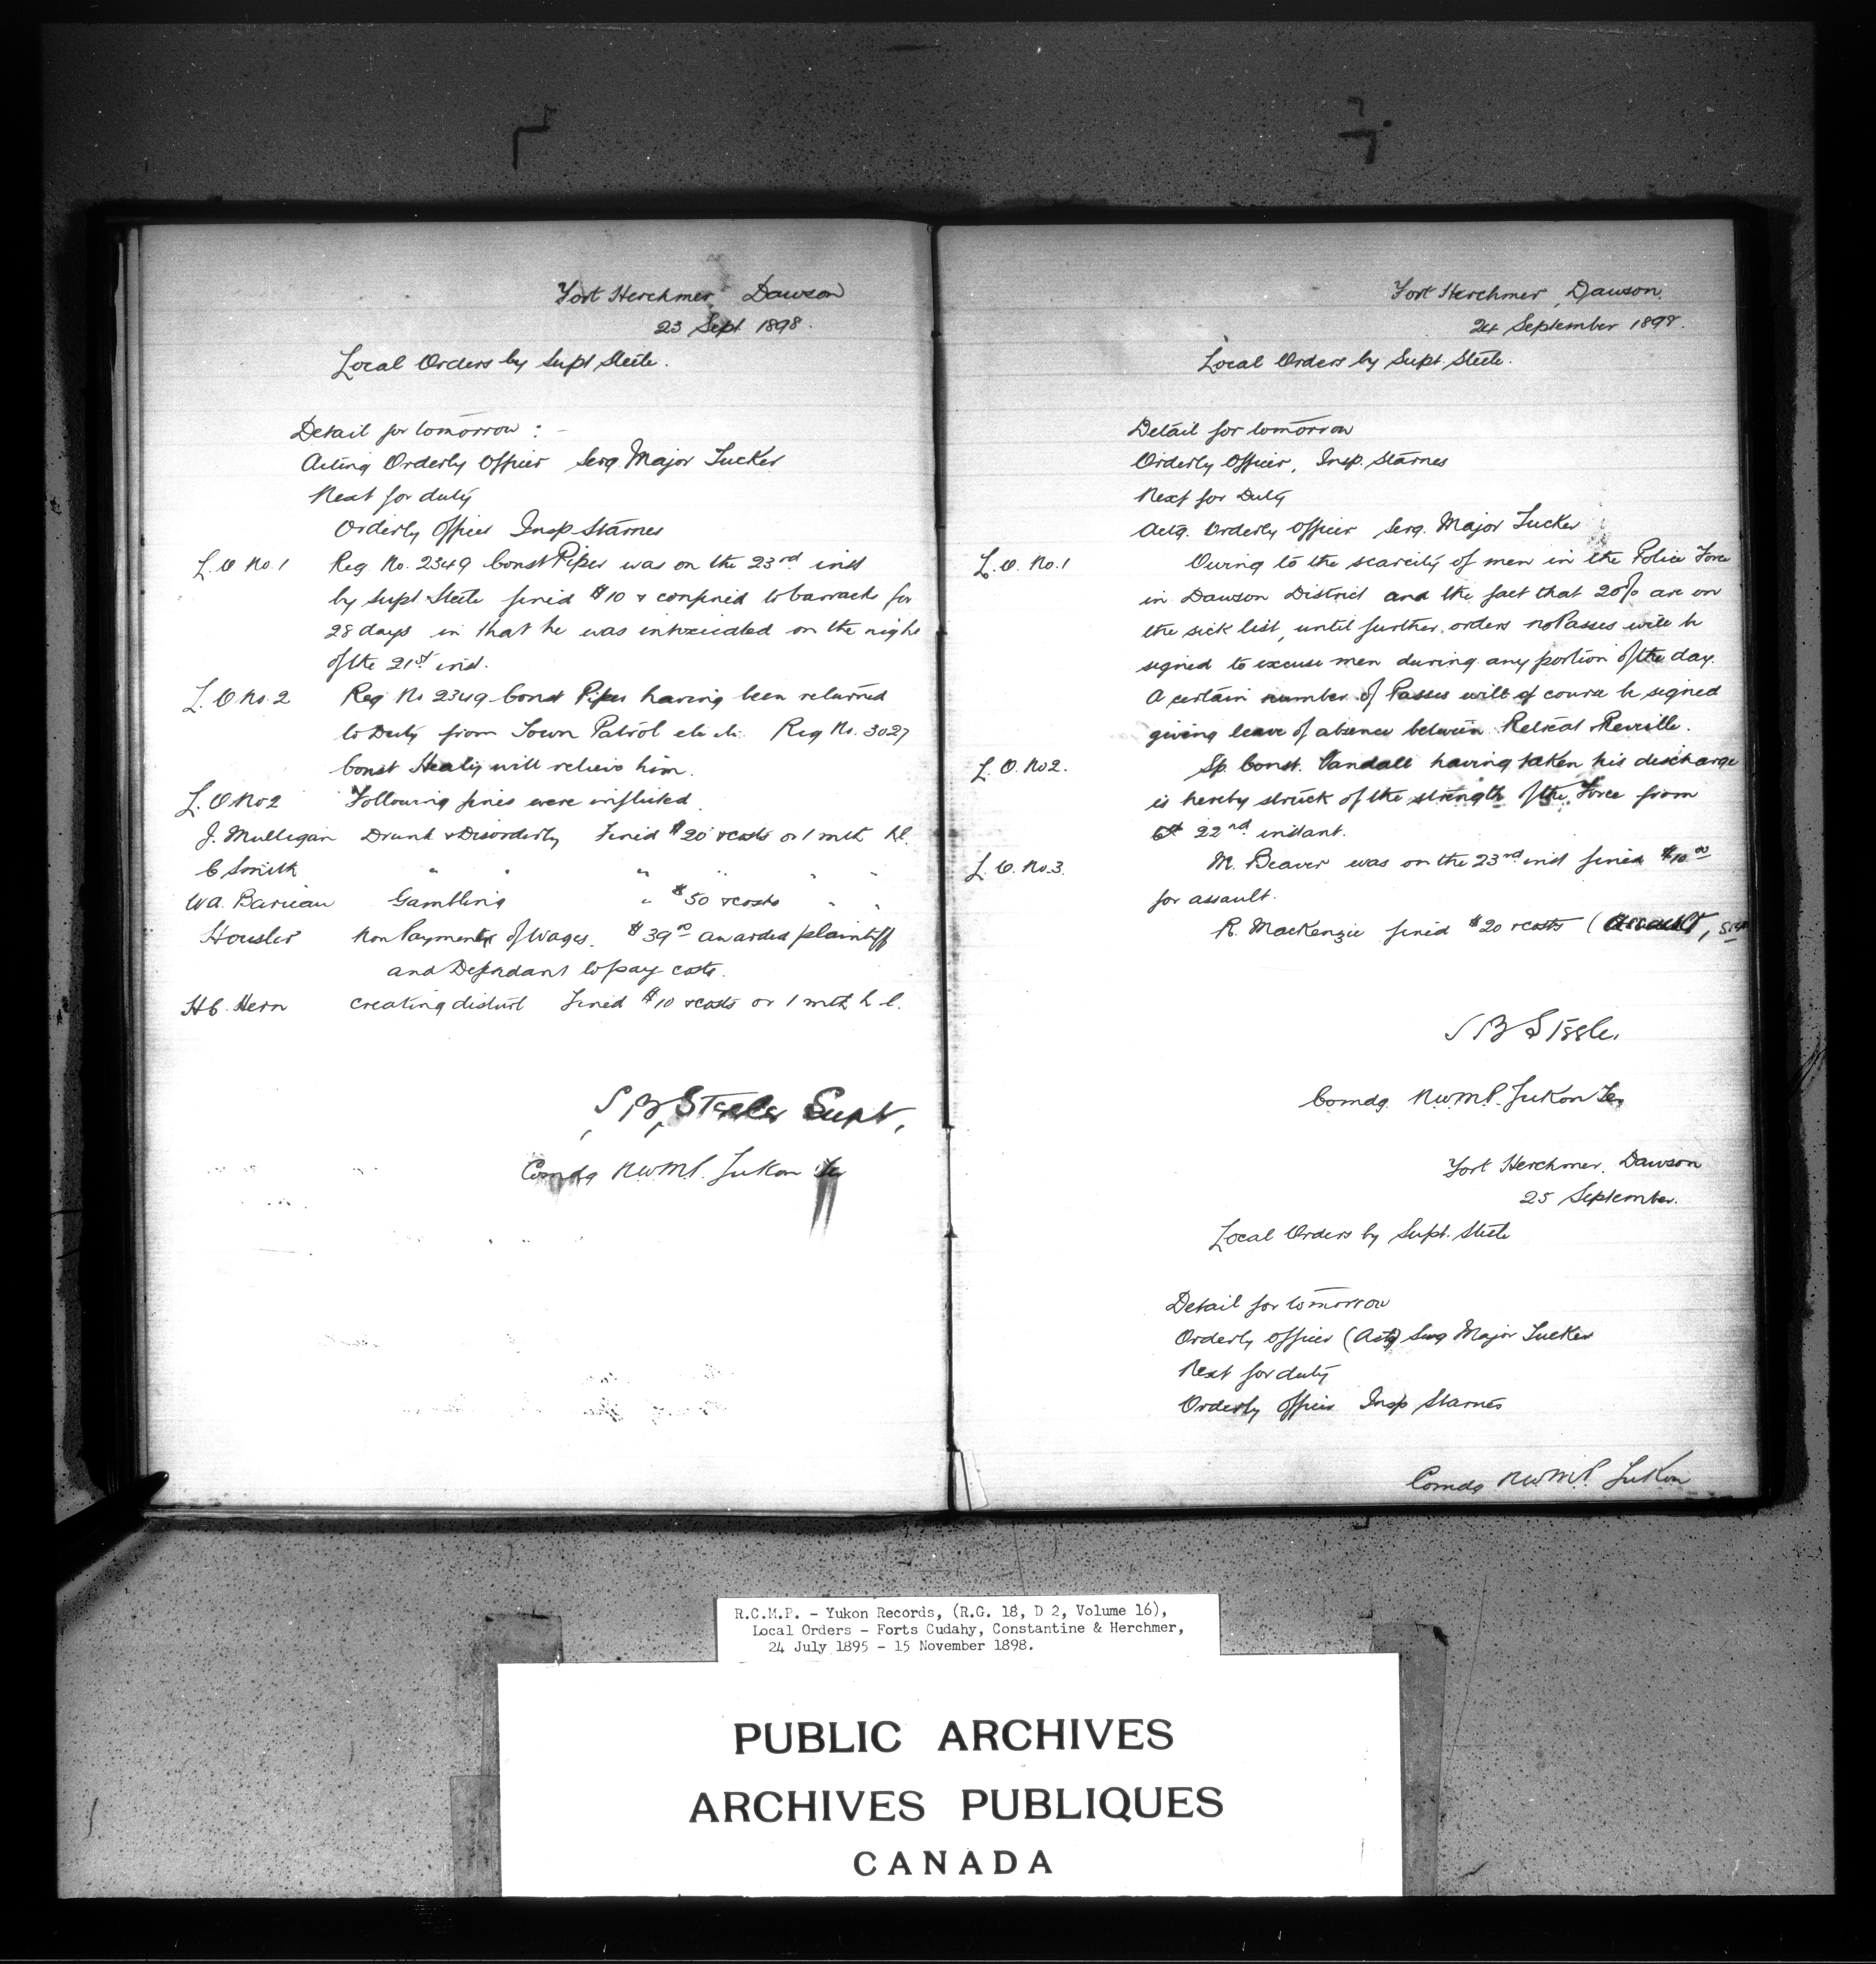 Fort Herchmer, Dawson
23 Sept 1898.
Local Orders by Supt Steele.
Detail for tomorrow : -
Acting Orderly Officer Serg. Major Tucker
Next for duty
Orderly Officer Insp Starnes
L. O No. 1 Reg. No. 2349 Const Piper was on the 23rd inst
by Supt Steele fined $10 & confined to barracks for
28 days in that he was intoxicated on the night
of the 21st inst.
L. O No. 2 Reg No 2349 Const Piper having been returned
to Duty from Town Patrol etc etc. Reg No. 3027
Const Healy will relieve him.
L. O No 2 Following fines were inflicted.
J. Mulligan Drunk & Disorderly Fined $20 & costs or 1 mth hl.
C Smith " " " " " "
Wa. Barieau Gambling " $50 & costs " "
Housler Non Payment of Wages. $39.00 awarded plaintiff
and Defendant to pay costs.
H C. Hern creating disturb Fined $10 & costs or 1 mth h l.
S B Steele Supt,
Comdg N.W.M.P. Yukon Ter
Fort Herchmer, Dawson.
24 September 1898.
Local Orders by Supt. Steele.
Detail for tomorrow
Orderly Officer, Insp. Starnes
Next for Duty
Actg. Orderly Officer Serg. Major Tucker
L. O. No. 1 Owing to the scarcity of men in the Police Force
in Dawson District and the fact that 20% are on
the sick list, until further orders no Passes will be
signed to excuse men during any portion of the day.
A certain number of Passes will of course be signed
giving leave of absence between Retreat & Reveille.
L. O. No 2. Sp. Const. Vandall having taken his discharge
is hereby struck of the strength of the Force from
22nd instant.
L. O. No. 3. M. Beaver was on the 23rd inst fined $10.00
for assault.
R. MacKenzie fined $20 & costs (Assault,
S B Steele.
Comdg. N.W.M.P. Yukon Ter
Fort Herchmer, Dawson
25 September.
Local Orders by Supt. Steele
Detail for tomorrow
Orderly Officer (Actg) Serg Major Tucker
Next for duty
Orderly Officer Insp Starnes
Comdg N.W.M.P. Yukon
R.C.M.P. - Yukon Records, (R.G. 18, D 2, Volume 16),
Local Orders - Forts Cudahy, Constantine & Herchmer,
24 July 1895 - 15 November 1898.
PUBLIC ARCHIVES
ARCHIVES PUBLIQUES
CANADA